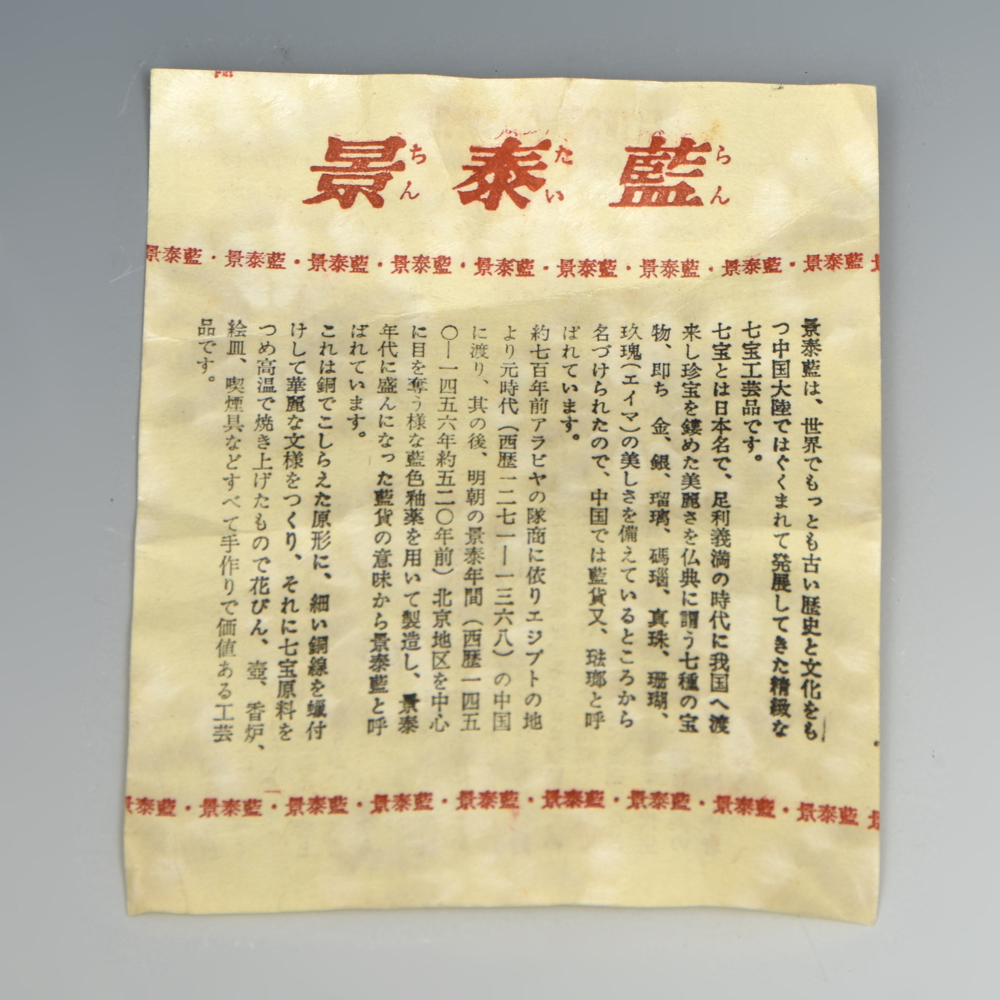 景泰藍
ちんたいらん
景泰藍・景泰藍・景泰藍・景泰藍・景泰藍・景泰藍・景泰藍・景泰藍・景泰藍
景泰藍は、世界でもっとも古い歴史と文化をも
つ中国大陸ではぐくまれて発展してきた精緻な
七宝工芸品です。
七宝とは日本名で、足利義満の時代に我国へ渡
来し珍宝を鏤めた美麗さを仏典に謂う七種の宝
物、即ち 金、銀、瑠璃、碼瑙、真珠、珊瑚、
玖瑰(エイマ)の美しさを備えているところから
名づけられたので、中国では藍貨又、琺瑯と呼
ばれています。
約七百年前アラビヤの隊商に依りエジプトの地
より元時代(西歴一二七一―一三六八)の中国
に渡り、其の後、明朝の景泰年間(西歴一四五
〇―一四五六年約五二〇年前)北京地区を中心
に目を奪う様な藍色釉薬を用いて製造し、景泰
年代に盛んになった藍貨の意味から景泰藍と呼
ばれています。
これは銅でこしらえた原形に、細い銅線を蠟付
けして華麗な文様をつくり、それに七宝原料を
つめ高温で焼き上げたもので花びん、壺、香炉、
絵皿、喫煙具などすべて手作りで価値ある工芸
品です。
景泰藍・景泰藍・景泰藍・景泰藍・景泰藍・景泰藍・景泰藍・景泰藍・景泰藍